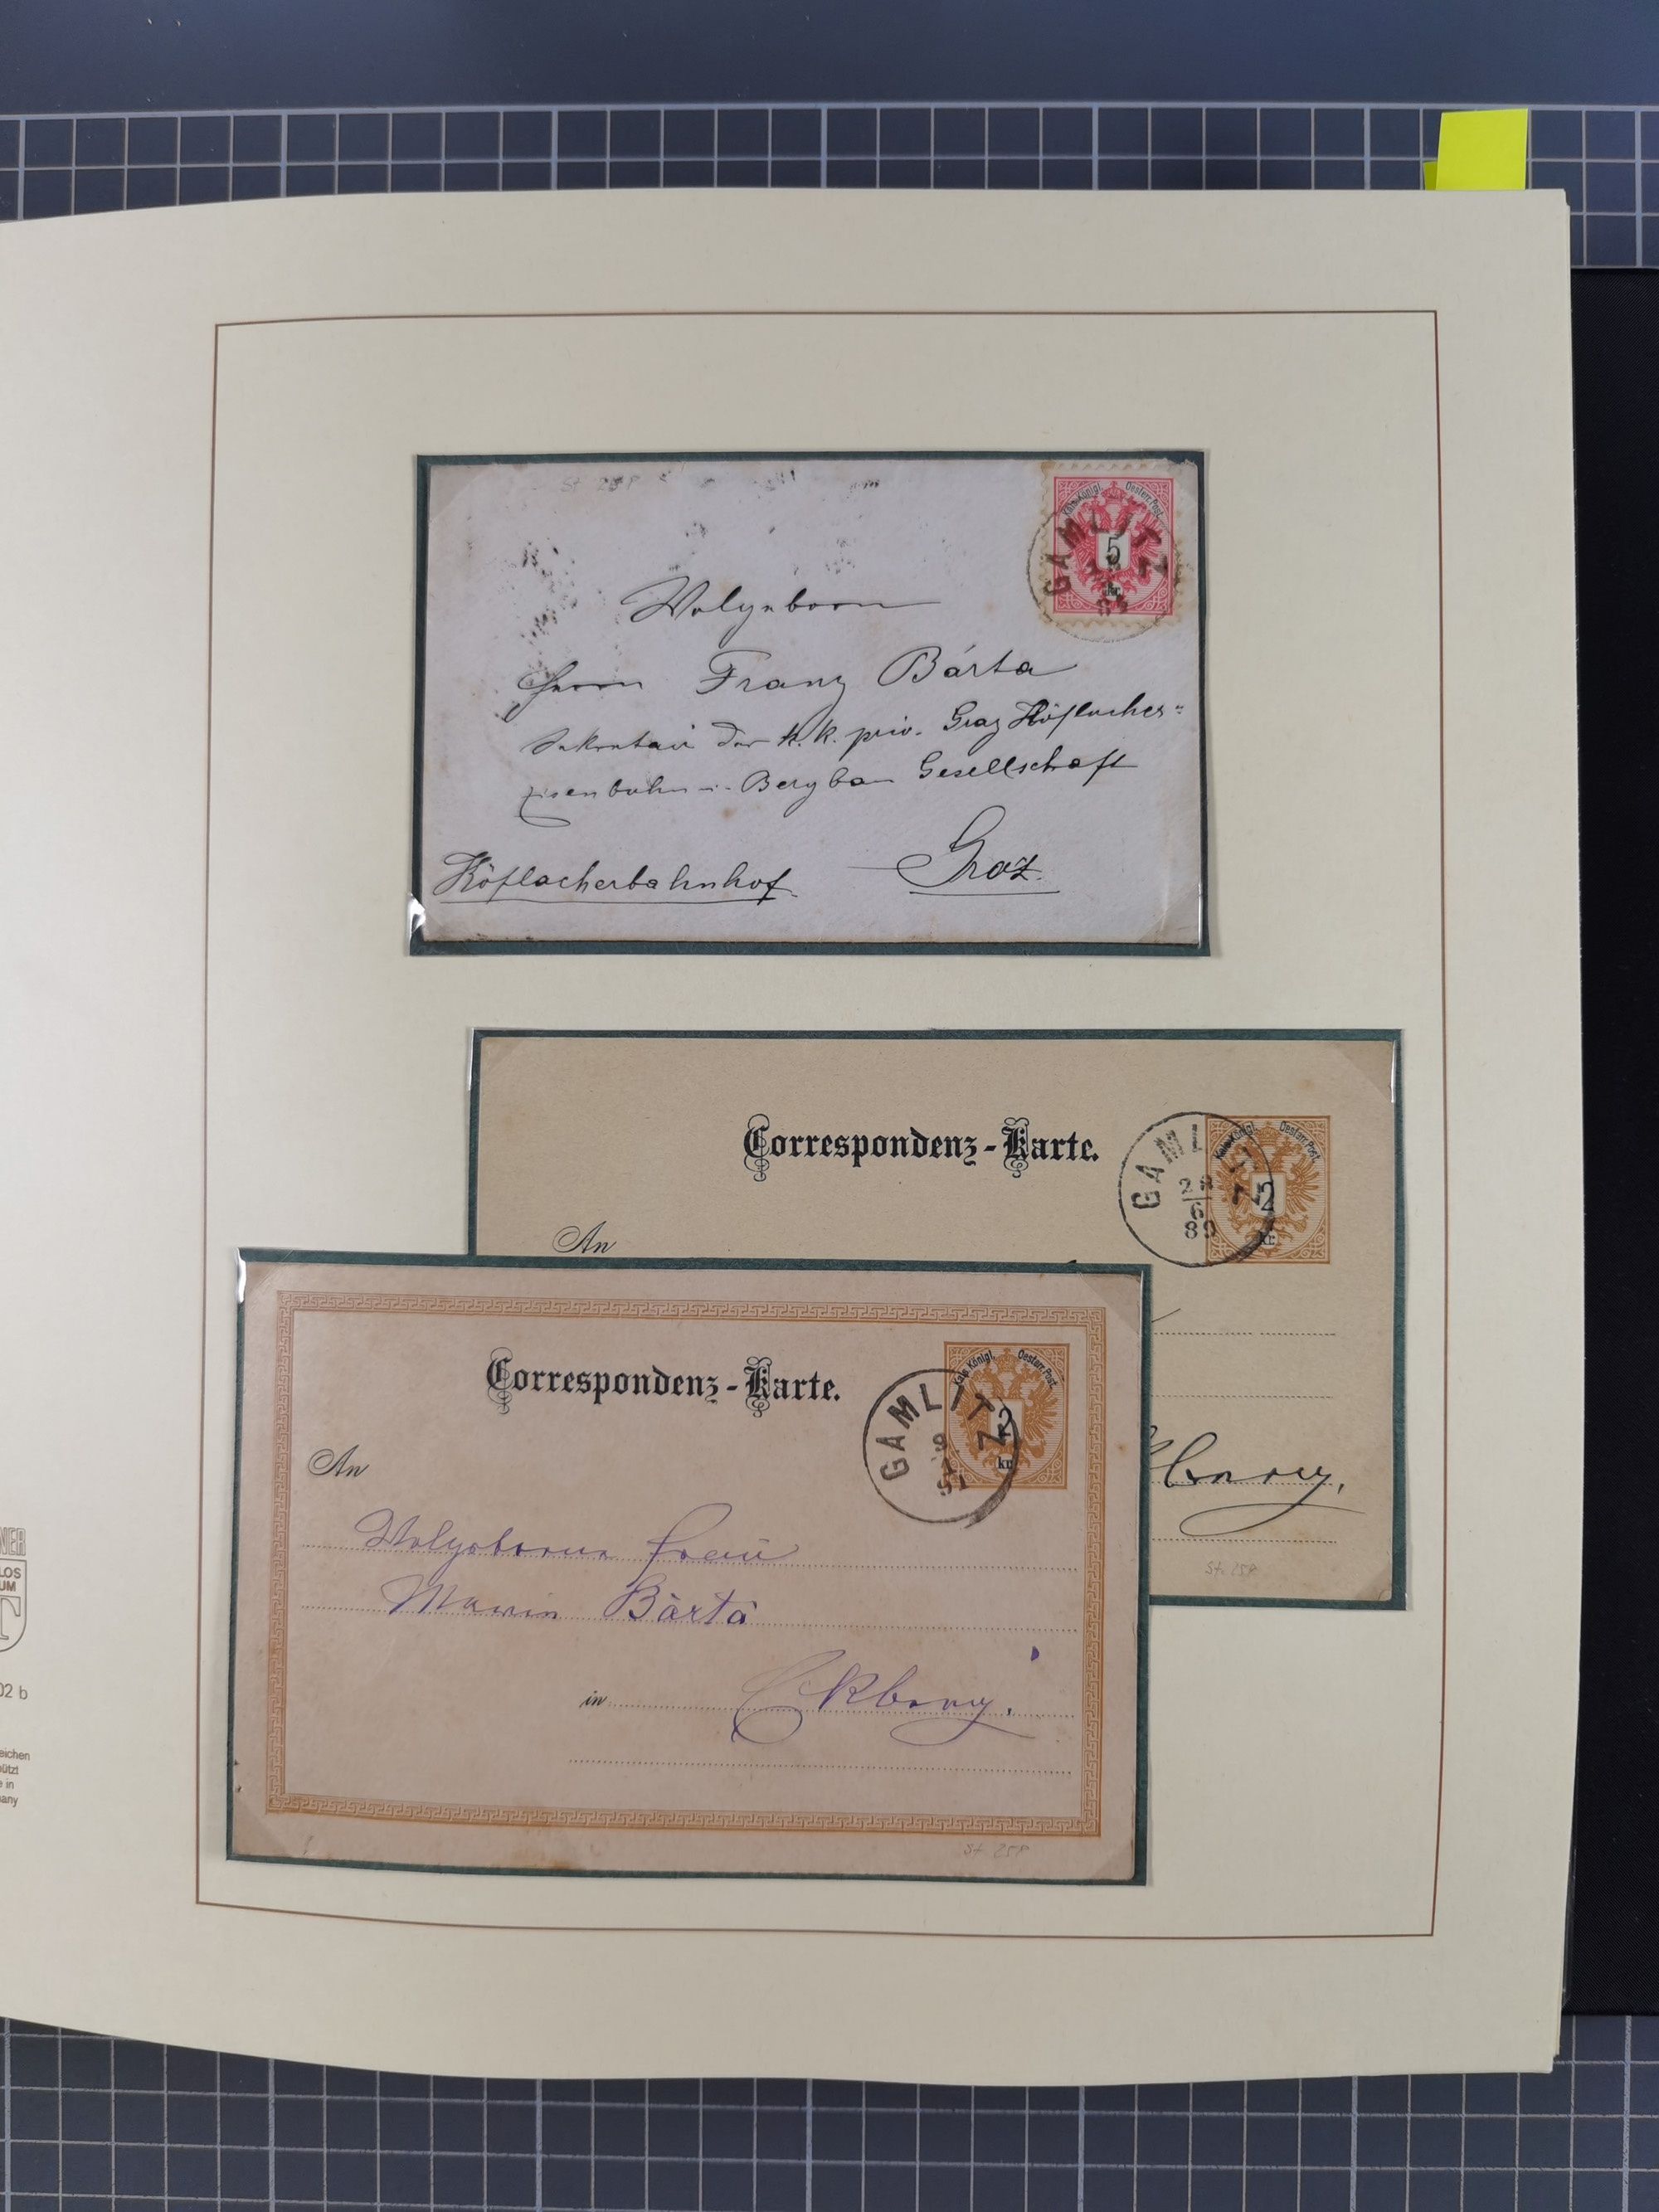 St 25P
Kais. Königl. Oesterr. Post.
GAMLITZ
5
kr.
Wolgeboren
Herrn Franz Bárta
Sekretair der k. k. priv. Graz Köflacher=
Eisenbahn u. Bergbau Gesellschaft
Köflacherbahnhof Graz.
Correspondenz-Karte.
Kais. Königl. Oesterr. Post.
GAMLITZ
6
89
2
kr.
An
St. 25P
Correspondenz-Karte.
Kais. Königl. Oesterr. Post.
GAMLITZ
91
2
kr.
An
Wolgeborene Frau
Marie Bárta
in Ekberg.
St 25P
NER
LOS
UM
T
02 b
eichen
ützt
e in
any